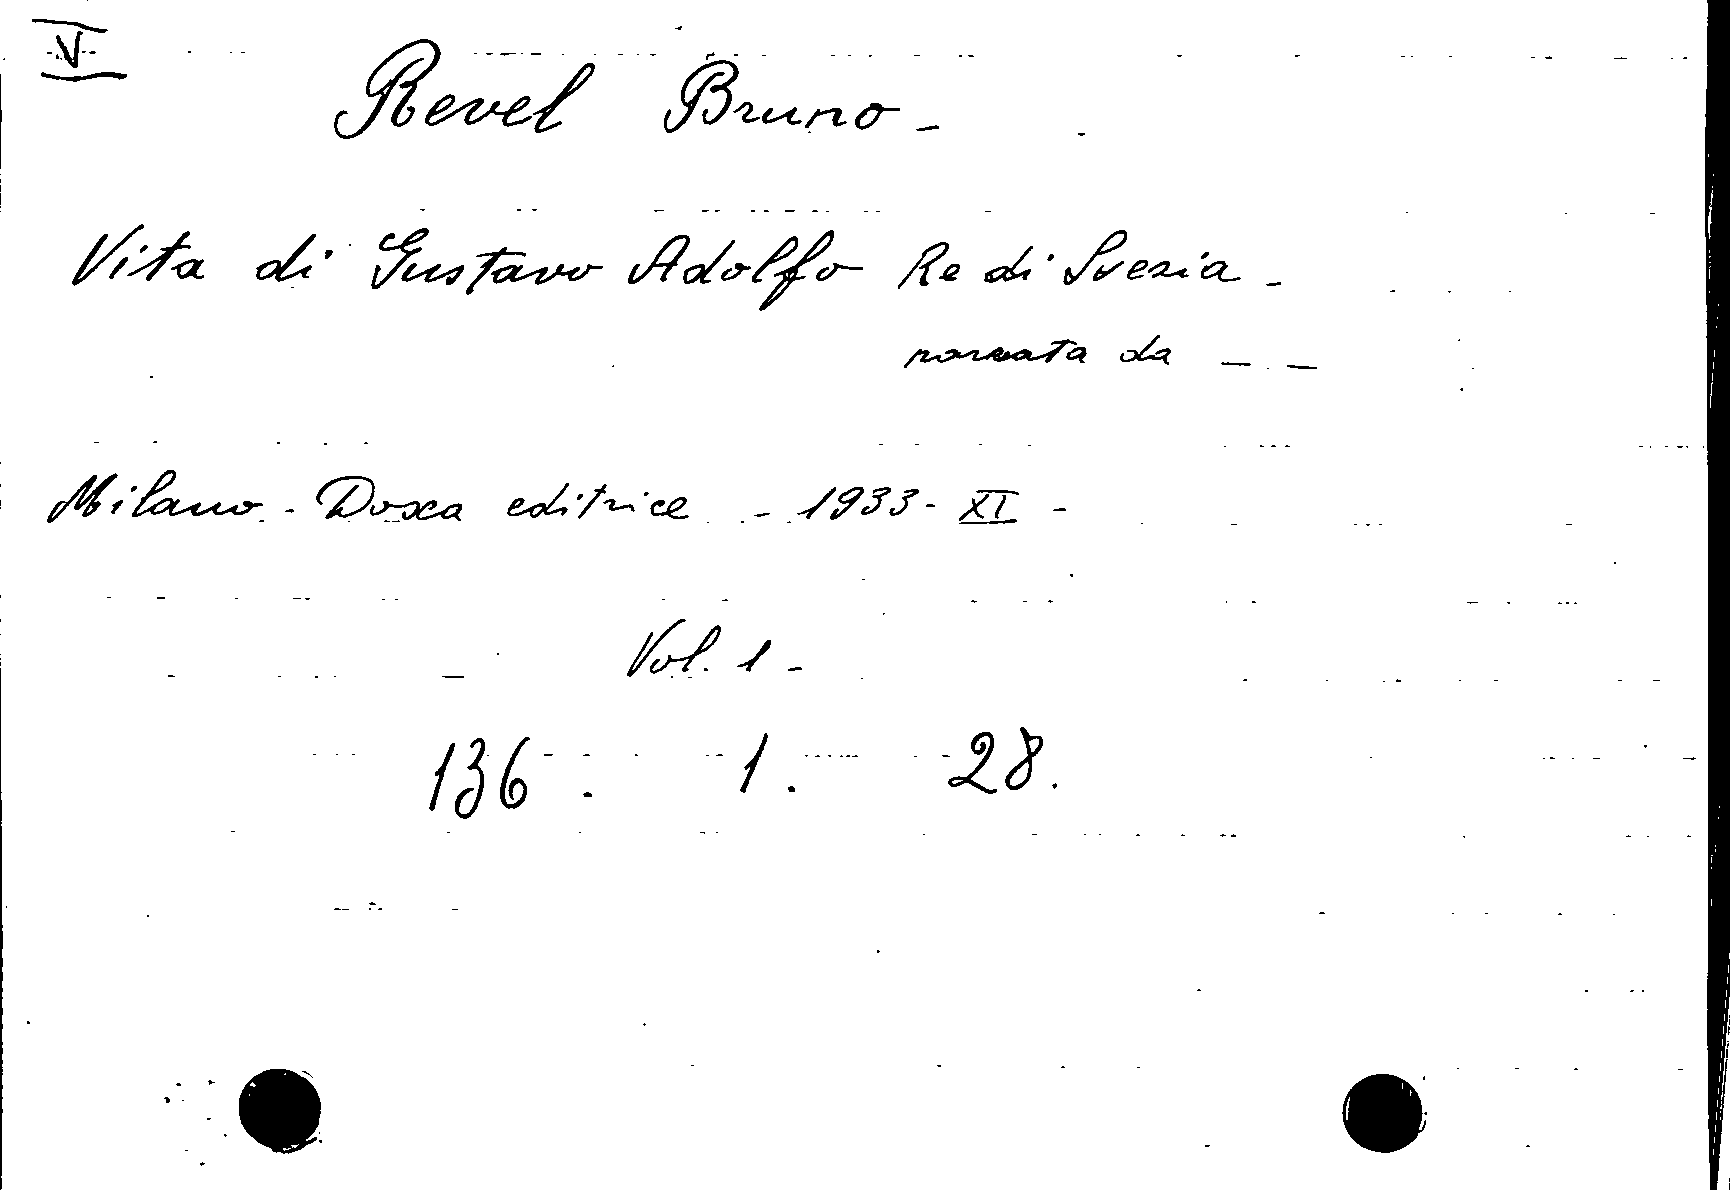 V
Revel Bruno -
Vita di Gustavo Adolfo Re di Svezia -
narrata da - -
Milano - Doxa editrice - 1933 - XI -
Vol. 1 -
136 . 1 . 28.